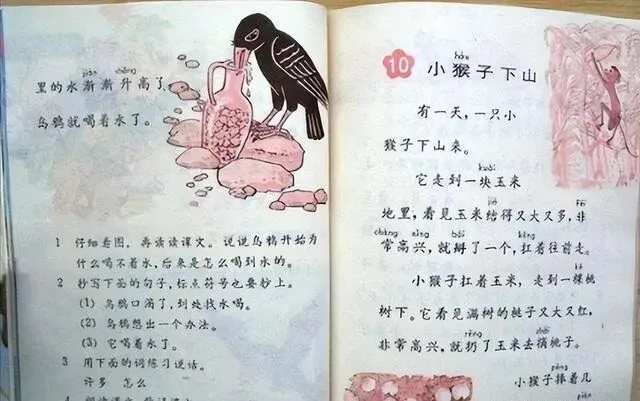 jiàn shēng
里的水渐渐升高了，
乌鸦就喝着水了。
1 仔细看图，再读读课文。说说乌鸦开始为
什么喝不着水，后来是怎么喝到水的。
2 抄写下面的句子，标点符号也要抄上。
(1) 乌鸦口渴了，到处找水喝。
(2) 乌鸦想出一个办法。
(3) 它喝着水了。
3 用下面的词练习说话。
许多 怎么
hóu
10 小猴子下山
有一天，一只小
猴子下山来。
kuài
它走到一块玉米
jiē fēi
地里，看见玉米结得又大又多，非
cháng xìng bāi káng
常高兴，就掰了一个，扛着往前走。
kē
小猴子扛着玉米，走到一棵桃
树下。它看见满树的桃子又大又红，
rēng zhāi
非常高兴，就扔了玉米去摘桃子。
pěng
小猴子捧着几